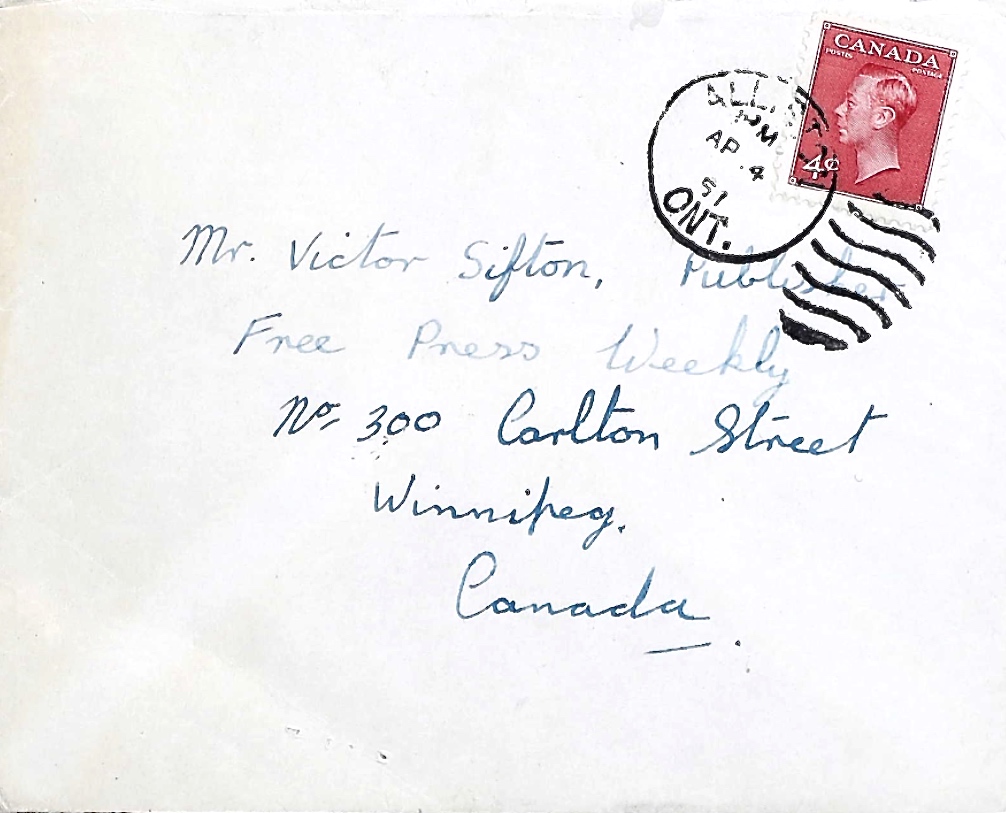 CANADA
POSTES POSTAGE
4¢
PM
AP 4
51
ONT.
Mr. Victor Sifton, Publisher
Free Press Weekly
No 300 Carlton Street
Winnipeg.
Canada.